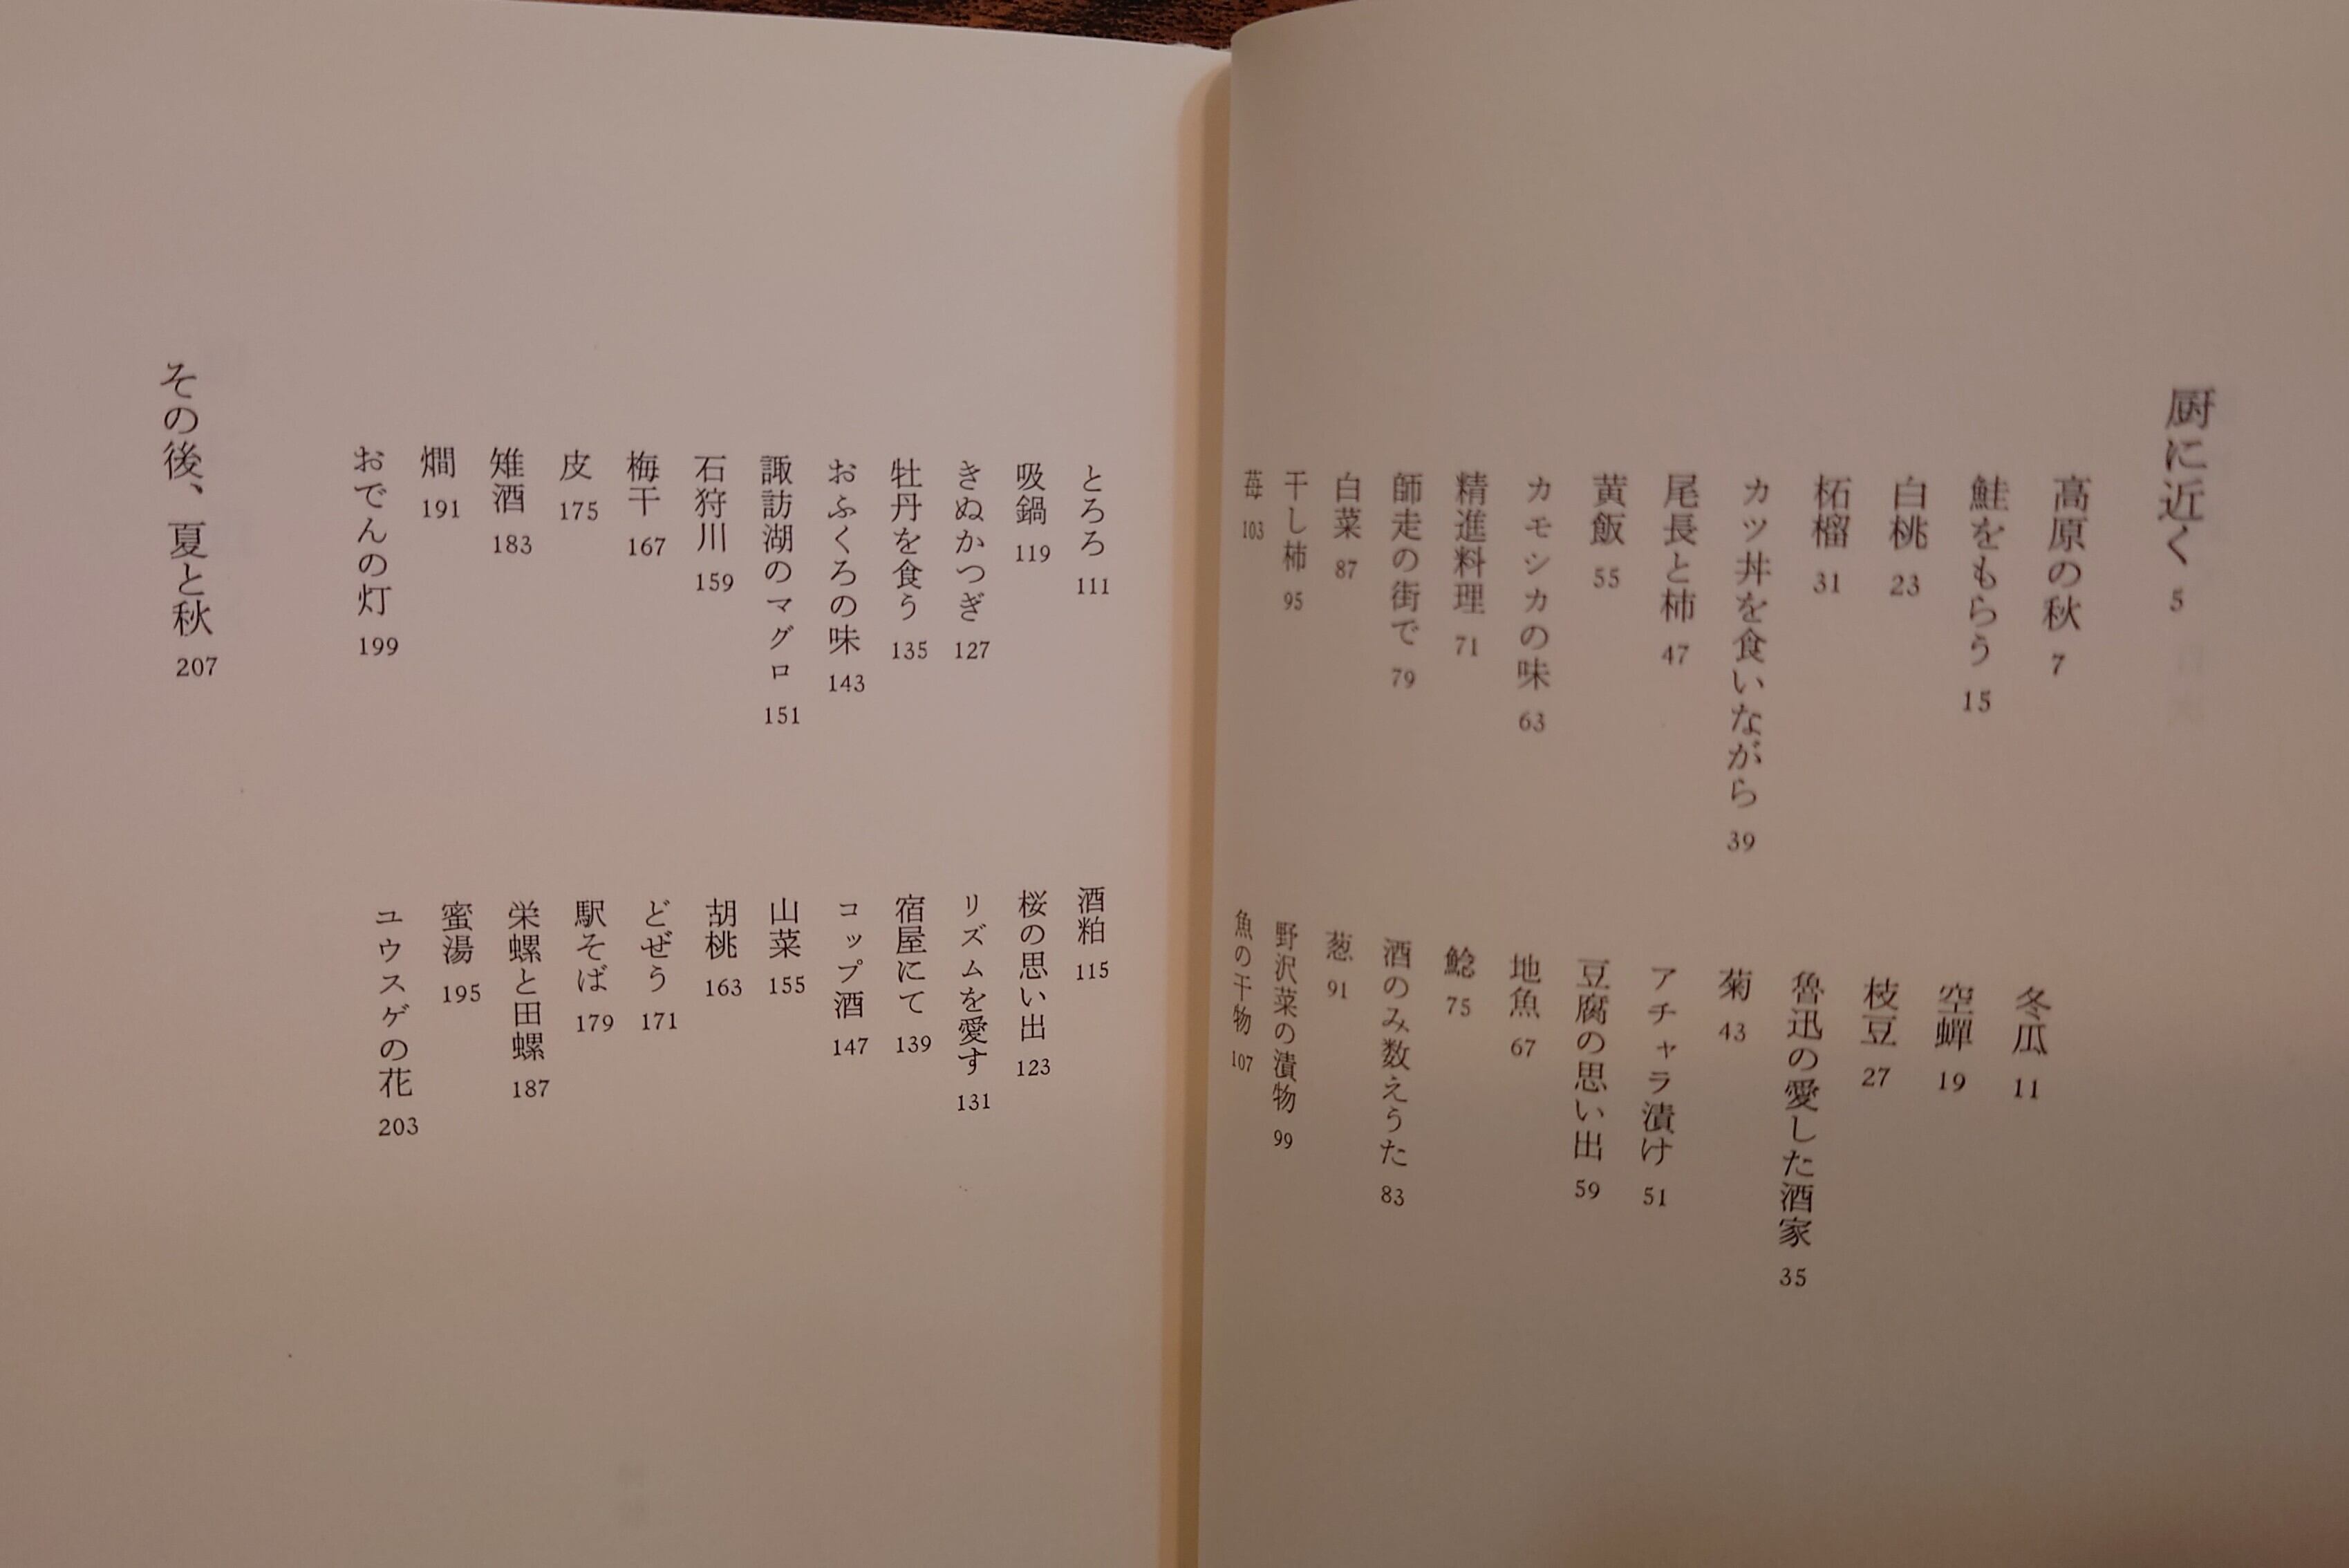 厨に近く 5
高原の秋 7
冬瓜 11
鮭をもらう 15
空蟬 19
白桃 23
枝豆 27
柘榴 31
魯迅の愛した酒家 35
カツ丼を食いながら 39
菊 43
尾長と柿 47
アチャラ漬け 51
黄飯 55
豆腐の思い出 59
カモシカの味 63
地魚 67
精進料理 71
鯰 75
師走の街で 79
酒のみ数えうた 83
白菜 87
葱 91
干し柿 95
野沢菜の漬物 99
苺 103
魚の干物 107
とろろ 111
酒粕 115
吸鍋 119
桜の思い出 123
きぬかつぎ 127
リズムを愛す 131
牡丹を食う 135
宿屋にて 139
おふくろの味 143
コップ酒 147
諏訪湖のマグロ 151
山菜 155
石狩川 159
胡桃 163
梅干 167
どぜう 171
皮 175
駅そば 179
雉酒 183
栄螺と田螺 187
燗 191
蜜湯 195
おでんの灯 199
ユウスゲの花 203
その後、夏と秋 207